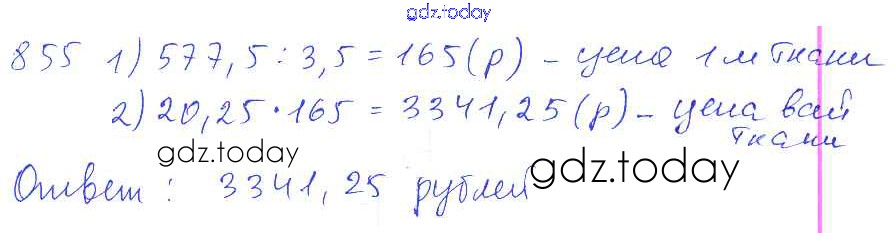 gdz.today
855 1) 577,5 : 3,5 = 165 (р) - цена 1 м ткани
2) 20,25 · 165 = 3341,25 (р) - цена всей
ткани
gdz.today
Ответ : 3341,25 рублей
gdz.today